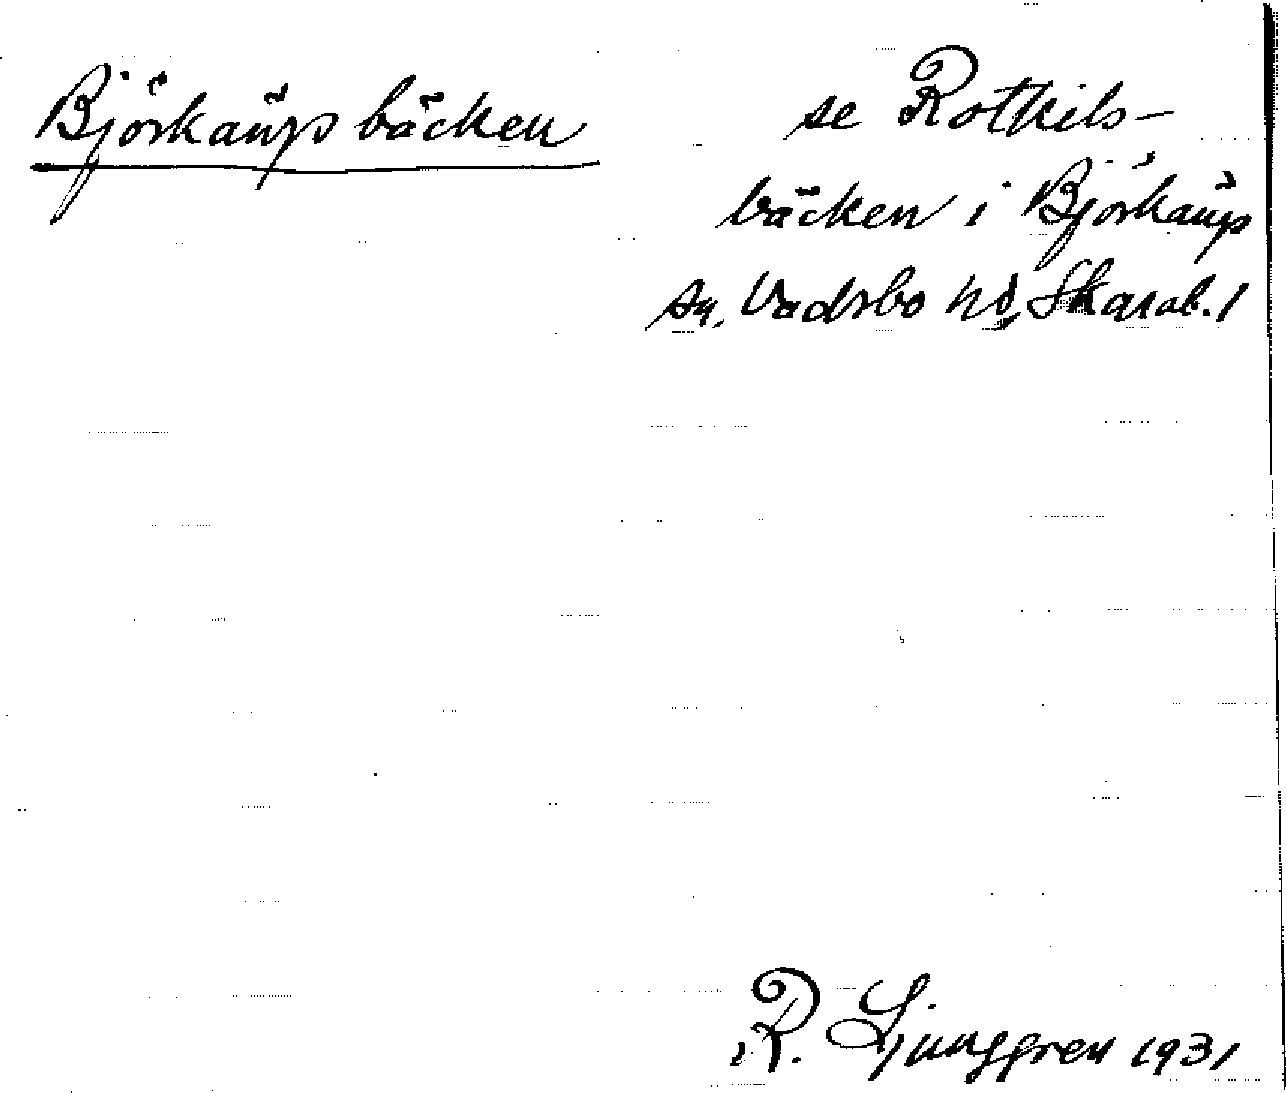 Björkängsbäcken
se Rotkils-
bäcken i Björkäng
sn, Vadsbo hd, Skarab. l
R. Ljunggren 1931